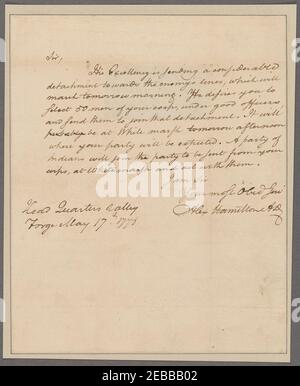 Sir,
His Excellency is sending a considerable
detachment towards the enemy's lines, which will
march tomorrow morning. He desires you to
select 50 men of your corps, under good officers
and send them to join that detachment. It will
probably be at White marsh tomorrow afternoon
where your party will be expected. A party of
Indians will join the party to be sent from your
corps, at Whitemarsh and act with them.
I am Sir
Your most Obed Ser
Alex Hamilton ADC
Head Quarters Valley
Forge May 17th
alamy
Image ID: 2EBBB02
www.alamy.com